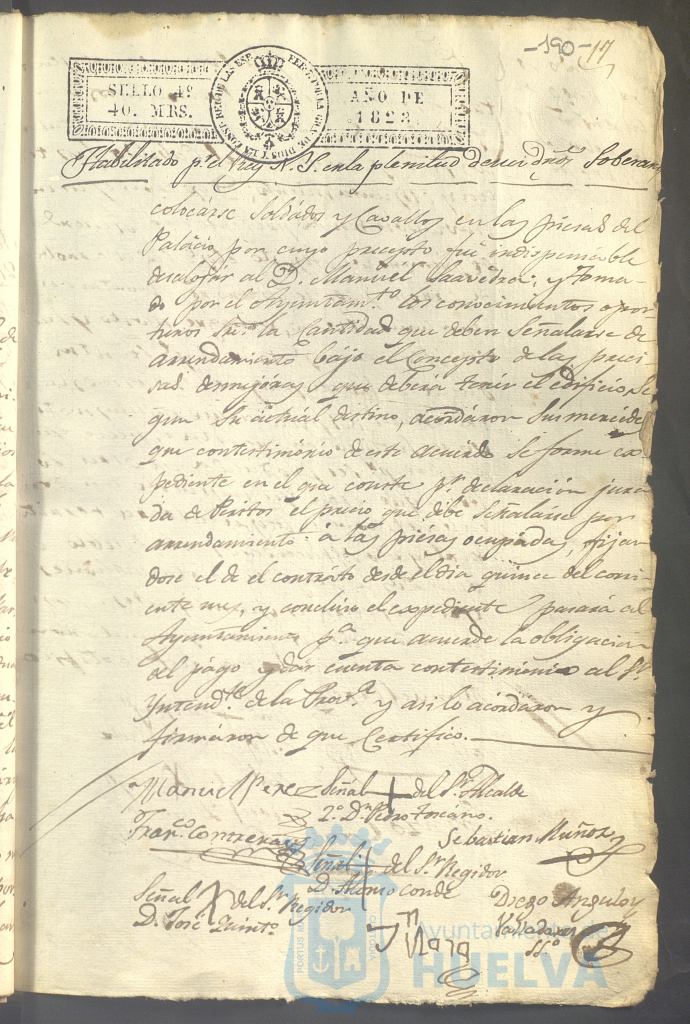 -190- 17
SELLO 4º
40. MRS.
AÑO DE
1823
Habilitado pr. el Rey N. S. en la plenitud de sus dros. Soberan
colocarse Soldados y Cavallos en las piesas del
Palacio, por cuyo precepto fue indispensable
desalojar al D. Manuel Saavedra; y toma-
do por el Ayuntamto. los conocimientos opor
tunos la Cantidad que deben Señalarse de
arrendamiento bajo el Concepto de las preci
sas mejoras que deberá tener el edificio, se
gun su actual destino, acordaron Sus mercedes
que con testimonio de este acuerdo Se forme ex
pediente en el que conste pr. declaración jura
da de Peritos el precio que debe señalarse por
arrendamiento á las piesas ocupadas, fijan
dose el de el contrato desde el dia quinse del corri-
ente mes, y concluso el expediente pasará al
Ayuntamiento pa. que acuerde la obligacion
del pago y dar cuenta con testimonio al Sr.
Yntendte. de la Prova. y asi lo acordaron y
firmaron de que Certifico.
Manuel Perez Señal + del Sr. Alcalde
2º. Dn. Pedro Toscano.
Franco. Contreras Sebastian Muñoz
Señal + del Sr. Regidor
D. Alonso Conde
Señal + del Sr. Regidor
D. José Quinto
Diego Angulo y
Valladares
SSº
Ayuntamiento de
HUELVA